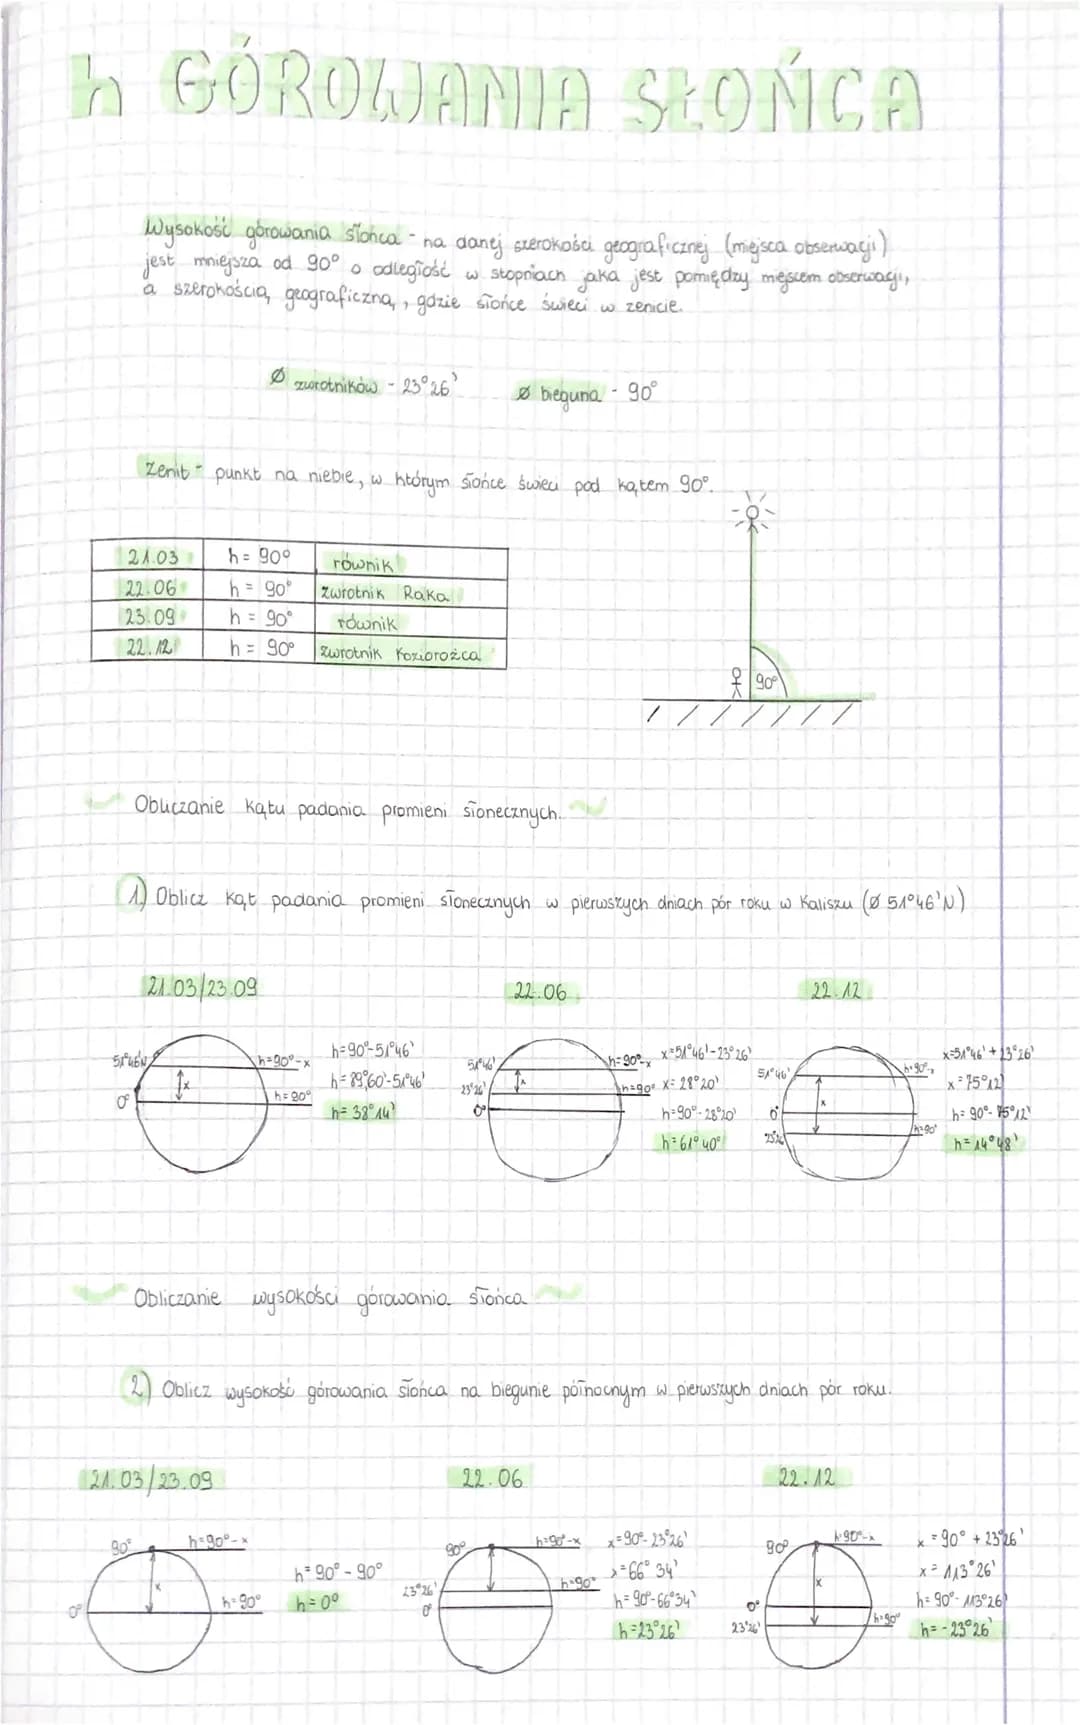 h GÓROWANIA SŁOŃCA
Wysokość górowania słońca - na danej szerokości geograficznej (miejsca obserwacji)
jest mniejsza od 90° o odległość w stopniach jaka jest pomiędzy mejscem obserwacji,
a szerokością geograficzną, gdzie słońce świeci w zenicie.
Ø zwrotników - 23°26' Ø bieguna - 90°
Zenit - punkt na niebie, w którym słońce świeci pod kątem 90°.
21.03 h = 90° równik
22.06 h = 90° zwrotnik Raka
23.09 h = 90° równik
22.12 h = 90° zwrotnik Koziorożca
90°
Obliczanie kątu padania promieni słonecznych.
1) Oblicz kąt padania promieni słonecznych w pierwszych dniach pór roku w Kaliszu (Ø 51°46'N)
21.03/23.09
51°46'N
h=90°-x
x
0°
h=90°
h=90°-51°46'
h=89°60'-51°46'
h=38°14'
22.06
51°46'
23°26'
0°
x
h=90°-x
h=90°
x=51°46'-23°26'
x=28°20'
h=90°-28°20'
h=61°40'
22.12
51°46'
0°
23°26'
x
h=90°-x
h=90°
x=51°46'+23°26'
x=75°12'
h=90°-75°12'
h=14°48'
Obliczanie wysokości górowania słońca
2) Oblicz wysokość górowania słońca na biegunie północnym w pierwszych dniach pór roku.
21.03/23.09
90°
h=90°-x
x
0°
h=90°
h=90°-90°
h=0°
22.06
90°
h=90°-x
23°26'
0°
h=90°
x=90°-23°26'
x=66°34'
h=90°-66°34'
h=23°26'
22.12
90°
h=90°-x
x
0°
23°26'
h=90°
x=90°+23°26'
x=113°26'
h=90°-113°26'
h=-23°26'